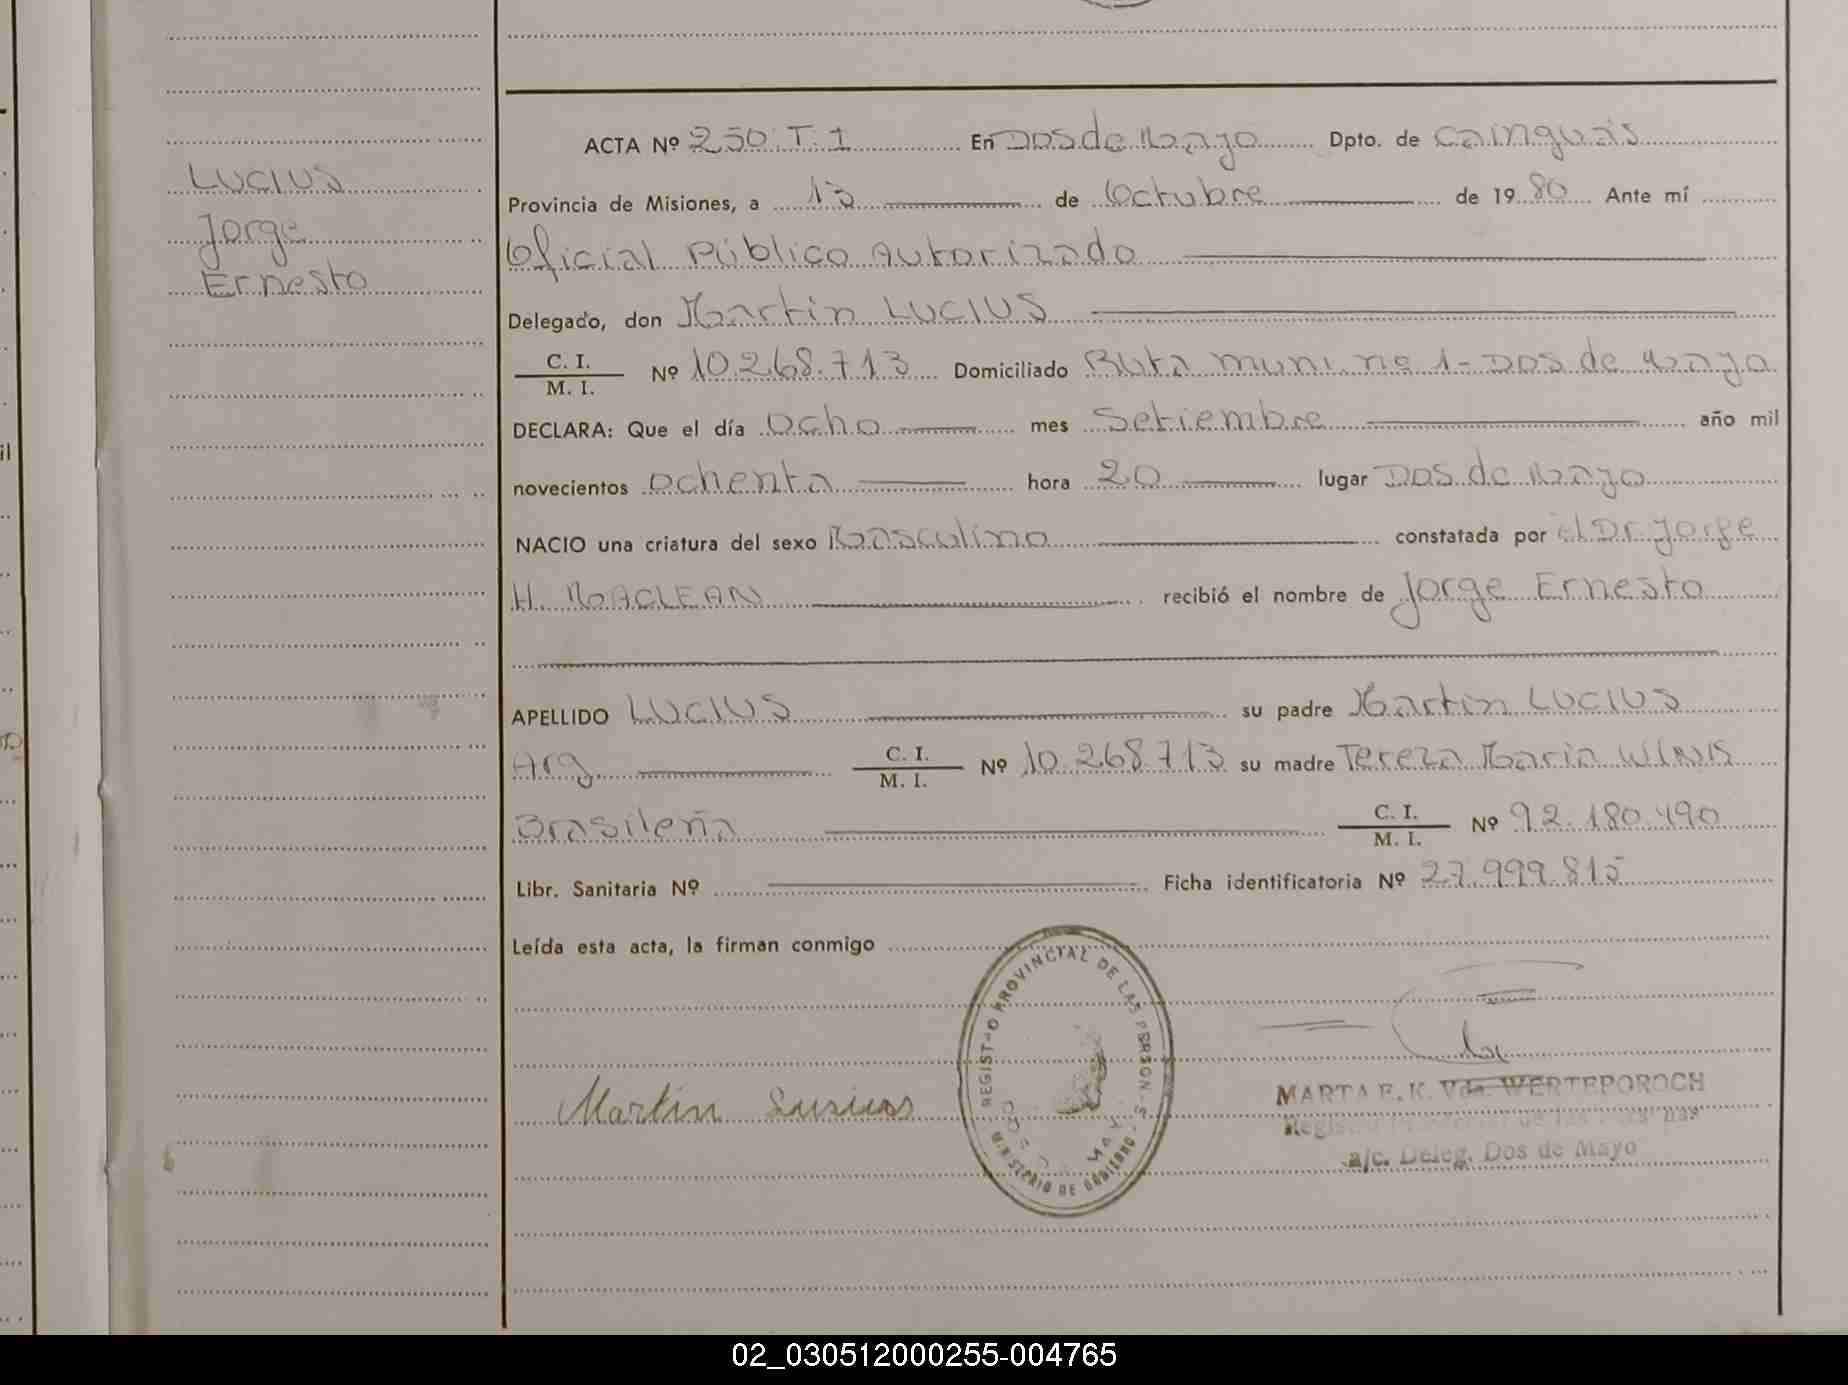 LUCIUS
Jorge
Ernesto
ACTA Nº 250. T. I En Dos de Mayo Dpto. de Cainguás
Provincia de Misiones, a 13 de Octubre de 1980 Ante mí
Oficial Público Autorizado
Delegado, don Martin LUCIUS
C. I.
M. I. Nº 10.268.713 Domiciliado Ruta muni. nº 1 - Dos de Mayo
DECLARA: Que el día Ocho mes Setiembre año mil
novecientos ochenta hora 20 lugar Dos de Mayo
NACIO una criatura del sexo Masculino constatada por el Dr. Jorge
H. MACLEAN recibió el nombre de Jorge Ernesto
APELLIDO LUCIUS su padre Martin LUCIUS
Arg. C. I.
M. I. Nº 10.268.713 su madre Tereza Maria
Brasileña C. I.
M. I. Nº 92.180.490
Libr. Sanitaria Nº Ficha identificatoria Nº 27.999.815
Leída esta acta, la firman conmigo
REGISTRO PROVINCIAL DE LAS PERSONAS
MINISTERIO DE GOBIERNO
Martin Lusius
MARTA E. K. Vda. WERTEPOROCH
a/c. Deleg. Dos de Mayo
02_030512000255-004765